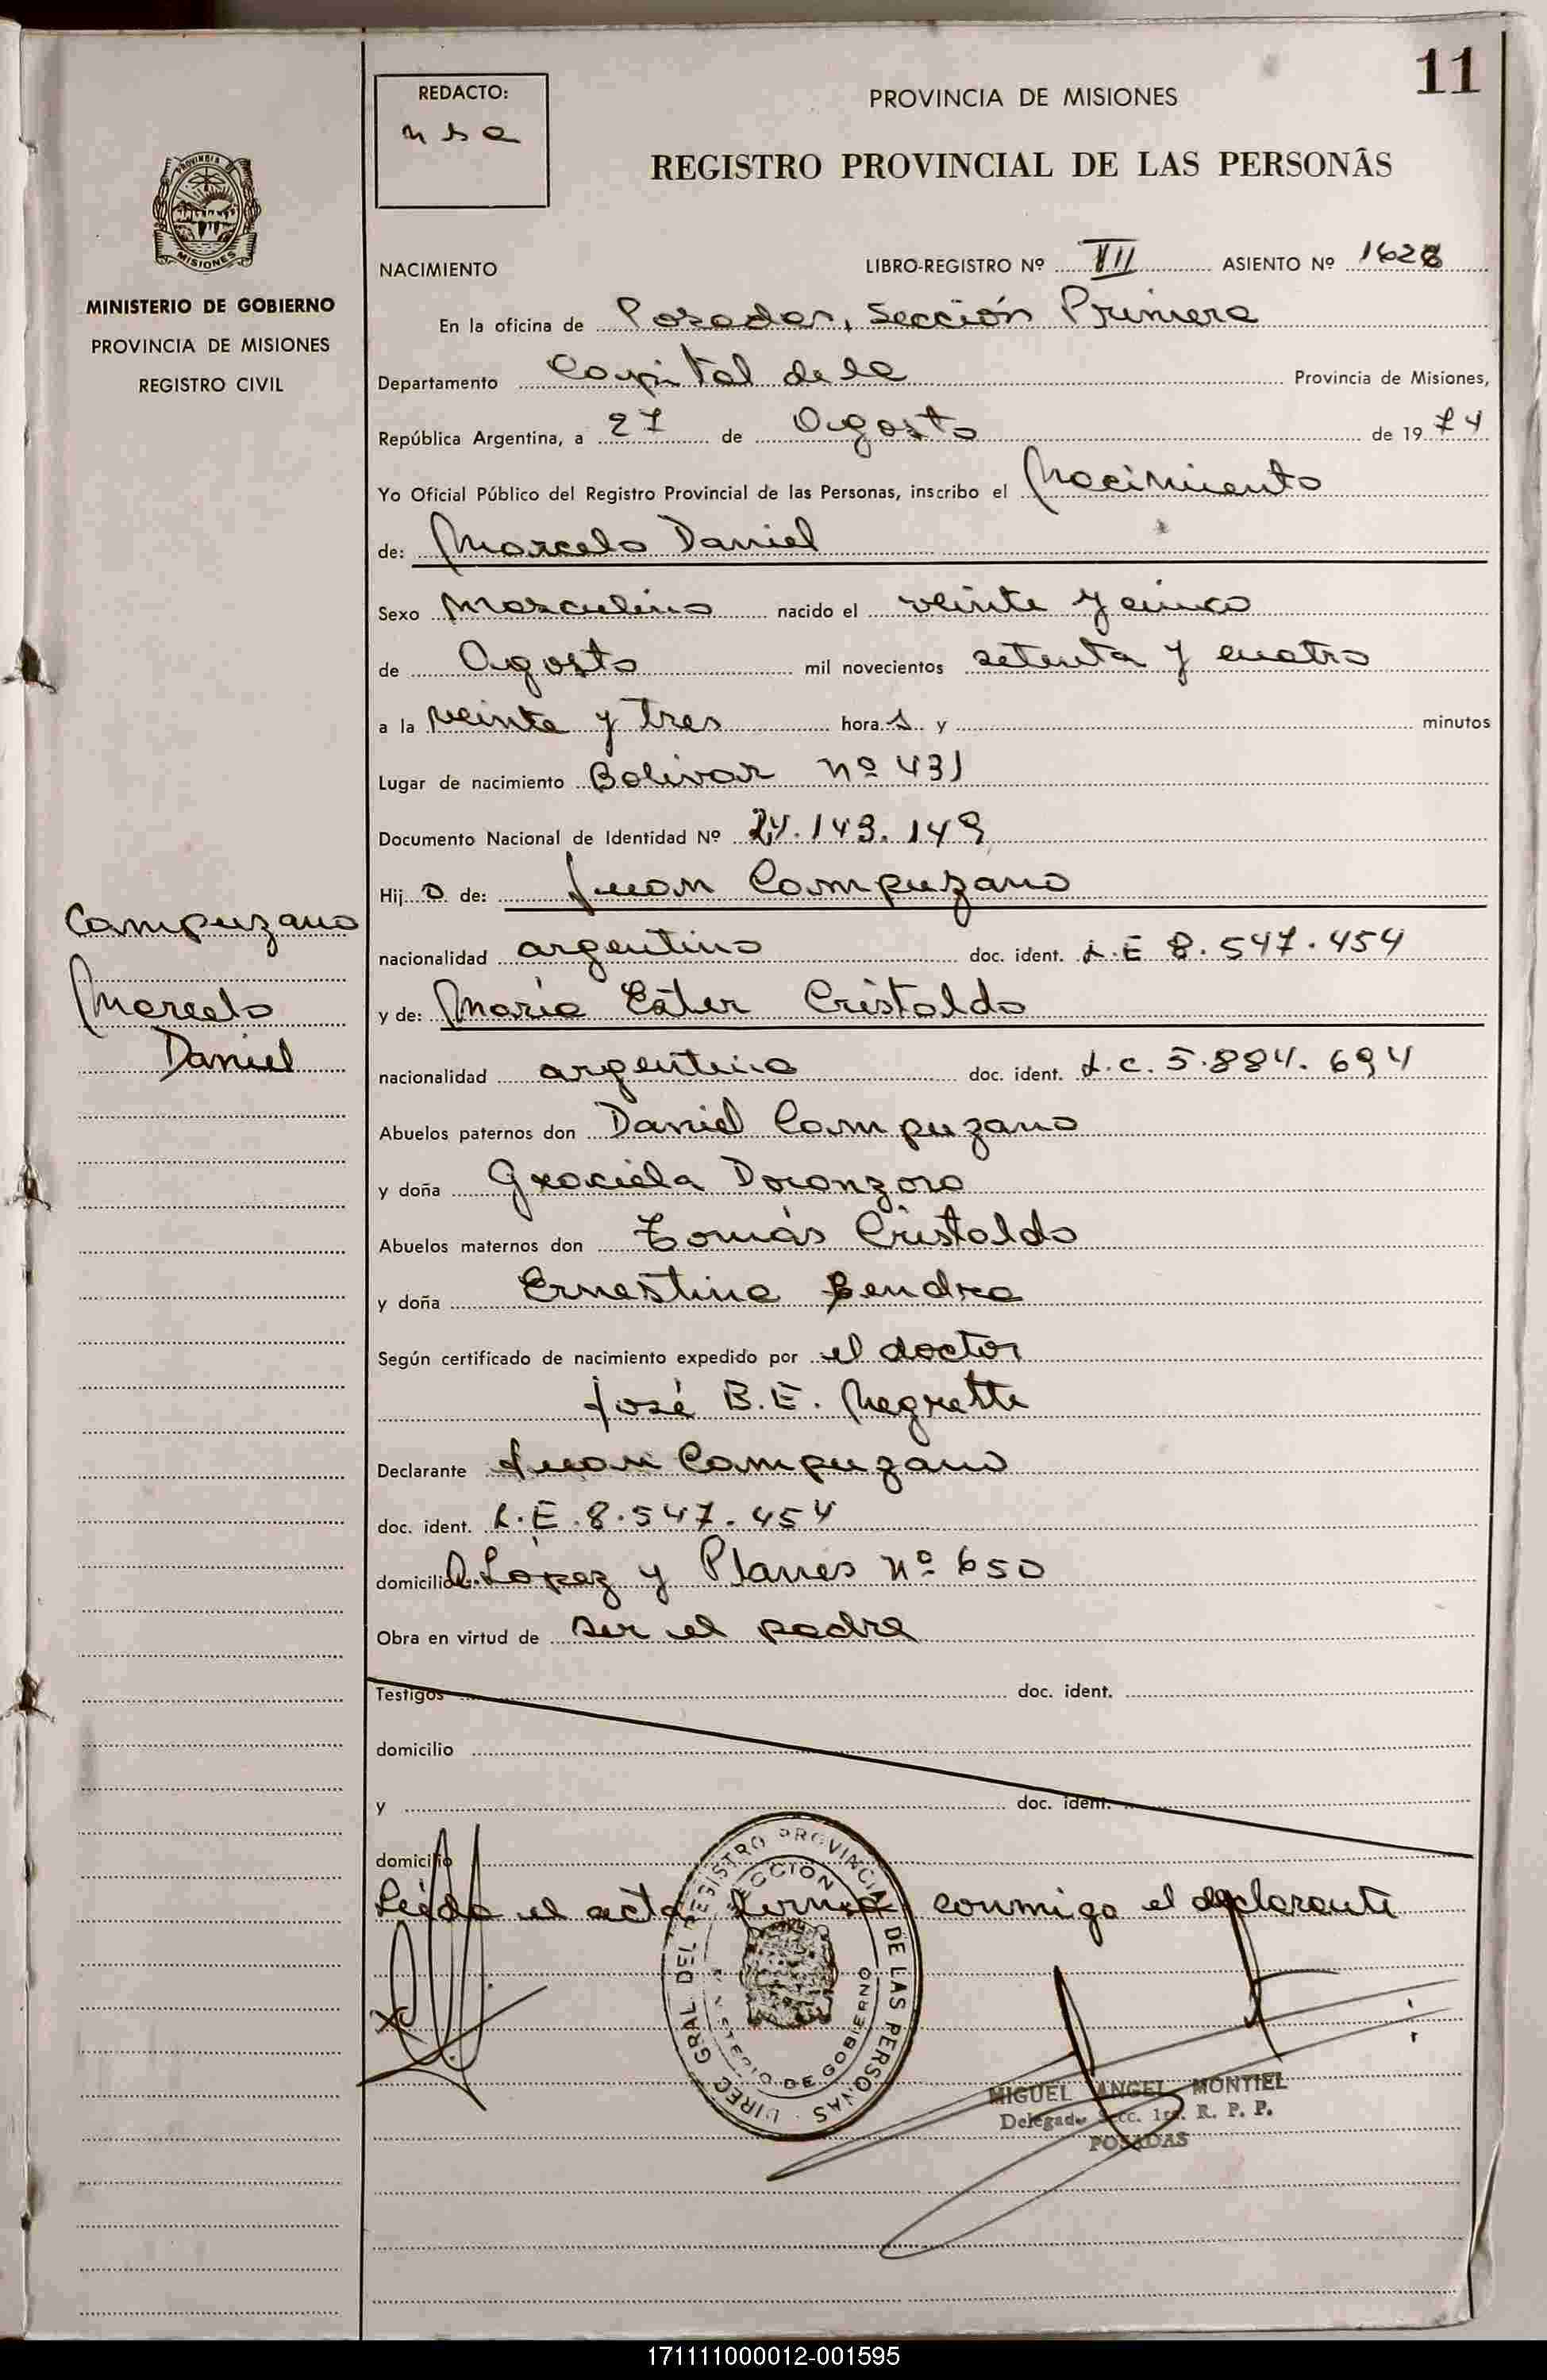 11
REDACTO:
PROVINCIA DE MISIONES
REGISTRO PROVINCIAL DE LAS PERSONAS
PROVINCIA
MISIONES
MINISTERIO DE GOBIERNO
PROVINCIA DE MISIONES
REGISTRO CIVIL
NACIMIENTO LIBRO-REGISTRO Nº VII ASIENTO Nº 1628
En la oficina de Posadas, Sección Primera
Departamento Capital de la Provincia de Misiones,
República Argentina, a 27 de Agosto de 1974
Yo Oficial Público del Registro Provincial de las Personas, inscribo el Nacimiento
de: Marcelo Daniel
Sexo Masculino nacido el veinte y cinco
de Agosto mil novecientos setenta y cuatro
a la veinte y tres horas y minutos
Lugar de nacimiento Bolivar Nº 431
Documento Nacional de Identidad Nº 24.143.149
Hijo de: Juan Campuzano
Campuzano
Marcelo
Daniel
nacionalidad argentino doc. ident. L.E 8.547.454
y de: María Ester Cristaldo
nacionalidad argentina doc. ident. L.C. 5.884.694
Abuelos paternos don Daniel Campuzano
y doña Graciela Doronzoro
Abuelos maternos don Tomás Cristaldo
y doña Ernestina Bendra
Según certificado de nacimiento expedido por el doctor
José B.E. Negrette
Declarante Juan Campuzano
doc. ident. L.E. 8.547.454
domicilio López y Planes Nº 650
Obra en virtud de ser el padre
Testigos doc. ident.
domicilio
y doc. ident.
domicilio
Leída el acta firma conmigo el declarante
DIREC. GRAL. DEL REGISTRO PROVINCIAL DE LAS PERSONAS
MINISTERIO DE GOBIERNO
MIGUEL ANGEL MONTIEL
Delegado Secc. 1ra. R. P. P.
POSADAS
171111000012-001595